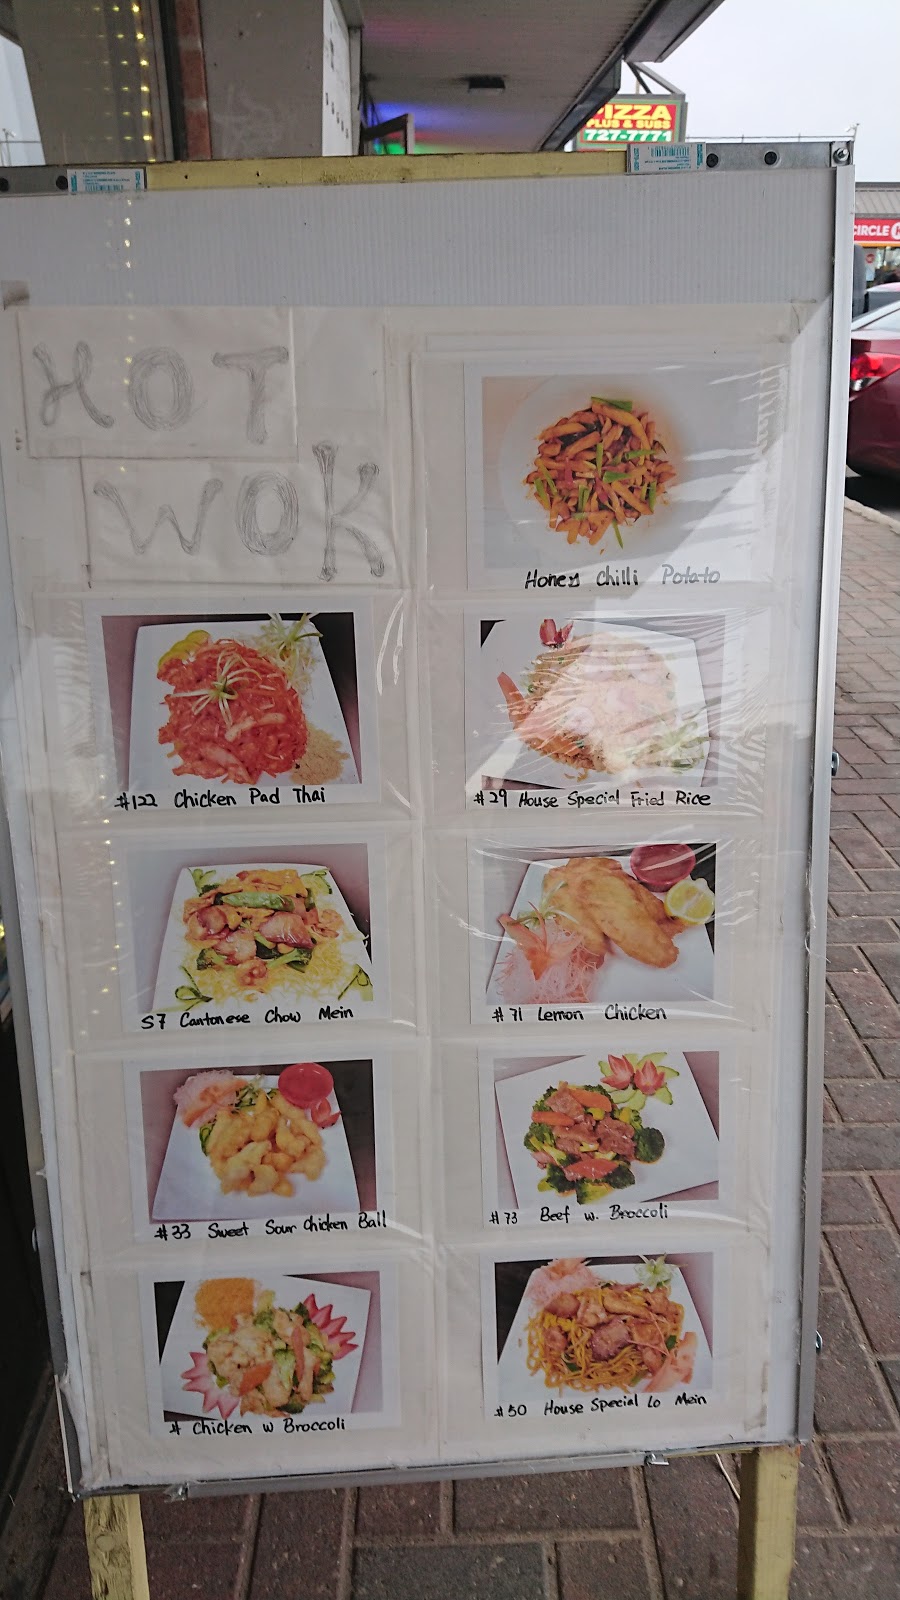 PIZZA
PLUS & SUBS
727-7771
CIRCLE K
HOT
WOK
Honey Chilli Potato
#122 Chicken Pad Thai
#29 House Special Fried Rice
57 Cantonese Chow Mein
#71 Lemon Chicken
#33 Sweet Sour Chicken Ball
#73 Beef w. Broccoli
# Chicken w Broccoli
#50 House Special Lo Mein